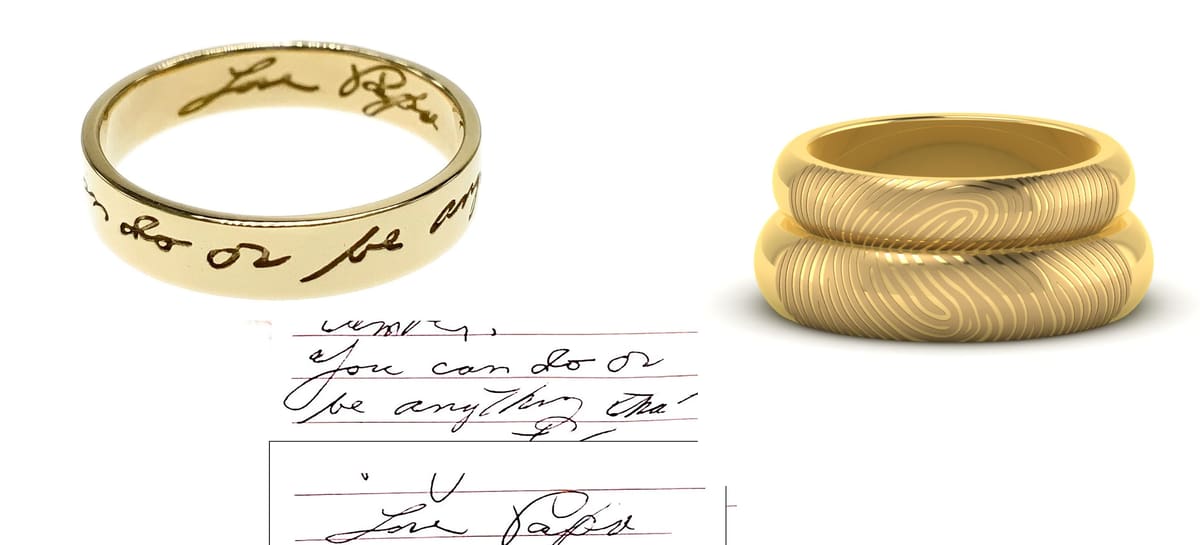 Love Papa
do or be any
"You can do or
be anything tha
Love Papa